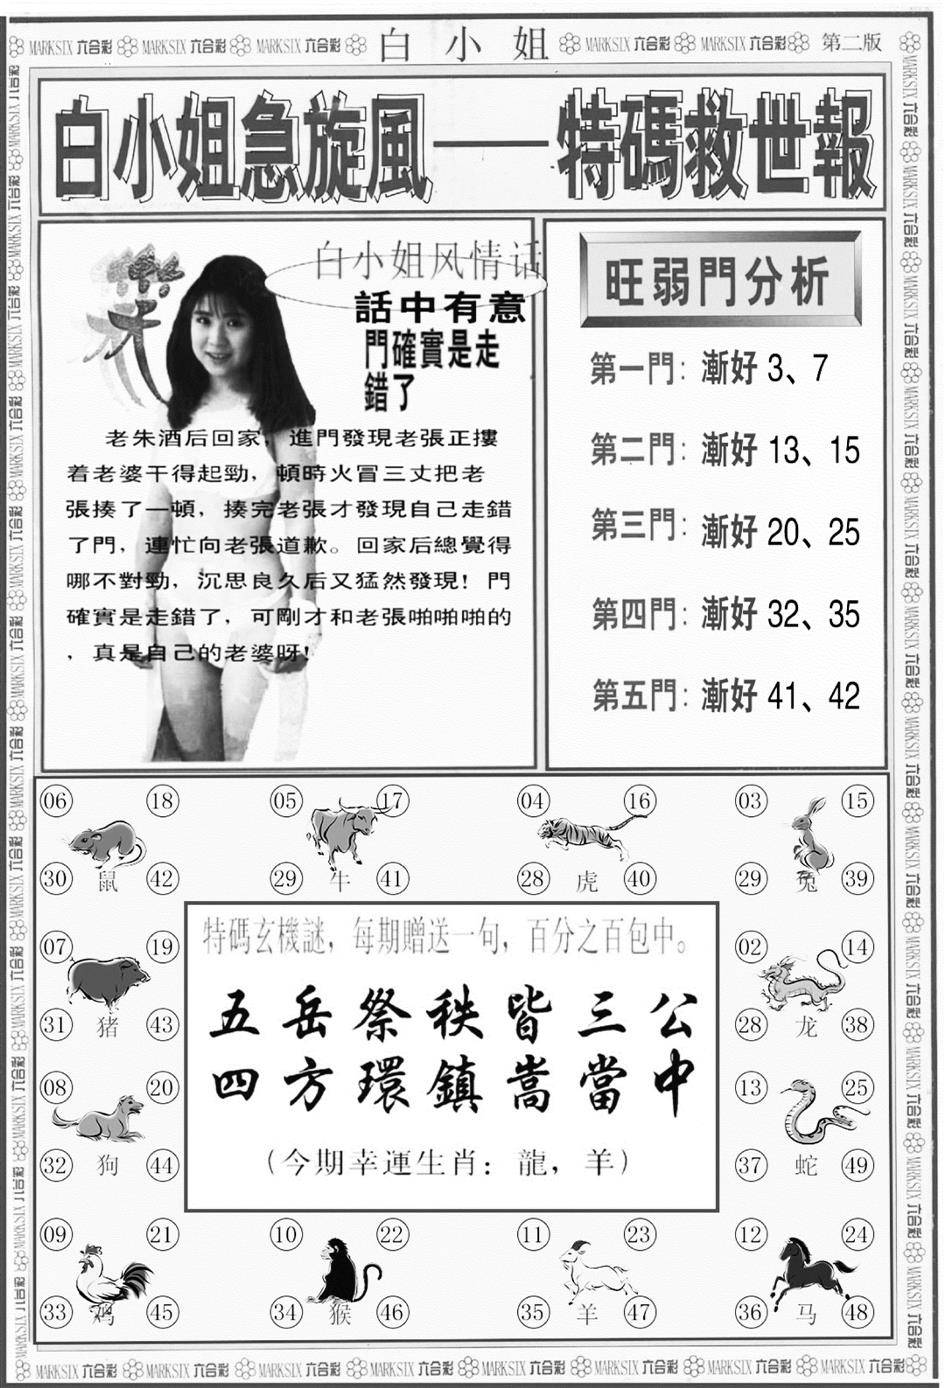 MARKSIX 六合彩 MARKSIX 六合彩 MARKSIX 六合彩 白小姐 MARKSIX 六合彩 MARKSIX 六合彩 第二版
白小姐急旋風——特碼救世報
樂
白小姐风情话
話中有意
門確實是走
錯了
老朱酒后回家，進門發現老張正摟
着老婆干得起勁，頓時火冒三丈把老
張揍了一頓，揍完老張才發現自己走錯
了門，連忙向老張道歉。回家后總覺得
哪不對勁，沉思良久后又猛然發現！門
確實是走錯了，可剛才和老張啪啪啪的
，真是自己的老婆呀！
旺弱門分析
第一門：漸好 3、7
第二門：漸好 13、15
第三門：漸好 20、25
第四門：漸好 32、35
第五門：漸好 41、42
06 18 05 17 04 16 03 15
30 鼠 42 29 牛 41 28 虎 40 29 兔 39
07 19
31 猪 43
08 20
32 狗 44
特碼玄機謎，每期贈送一句，百分之百包中。
五岳祭秩皆三公
四方環鎮嵩當中
（今期幸運生肖：龍，羊）
02 14
28 龙 38
13 25
37 蛇 49
09 21 10 22 11 23 12 24
33 鸡 45 34 猴 46 35 羊 47 36 马 48
MARKSIX 六合彩 MARKSIX 六合彩 MARKSIX 六合彩 MARKSIX 六合彩 MARKSIX 六合彩 MARKSIX 六合彩 MARKSIX 六合彩 MARKSIX 六合彩